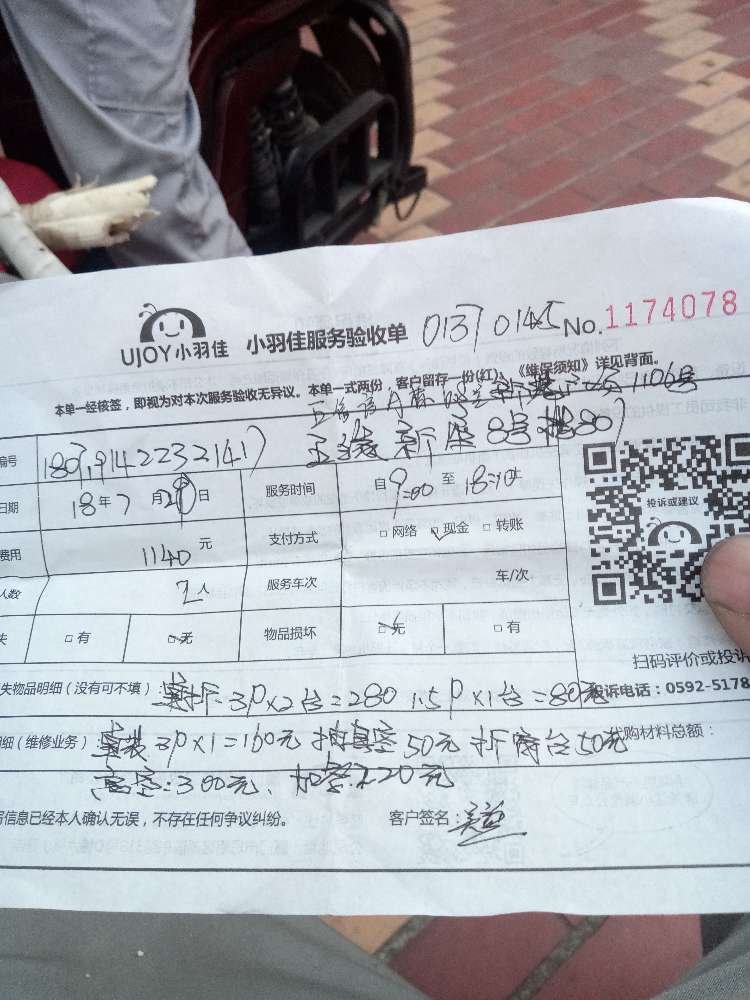 UJOY小羽佳 小羽佳服务验收单 01370145 No. 1174078
本单一经核签，即视为对本次服务验收无异议。本单一式两份，客户留存一份(红)、《维保须知》详见背面。
1106号
8号
编号 180791422321417
日期 18年7月29日 服务时间 自9:00至18:10
费用 1140元 支付方式 □网络 □现金 □转账
人数 2人 服务车次 车/次
失 □有 □无 物品损坏 □无 □有
投诉或建议
扫码评价或投诉
失物品明细（没有可不填）： 拆3P×2台=280 1.5P×1台=80元
投诉电话：0592-5178
细（维修业务）： 安装3P×1=160元 抽真空50元 拆 台50元
购材料总额：
高空:300元、 220元
写信息已经本人确认无误，不存在任何争议纠纷。 客户签名：